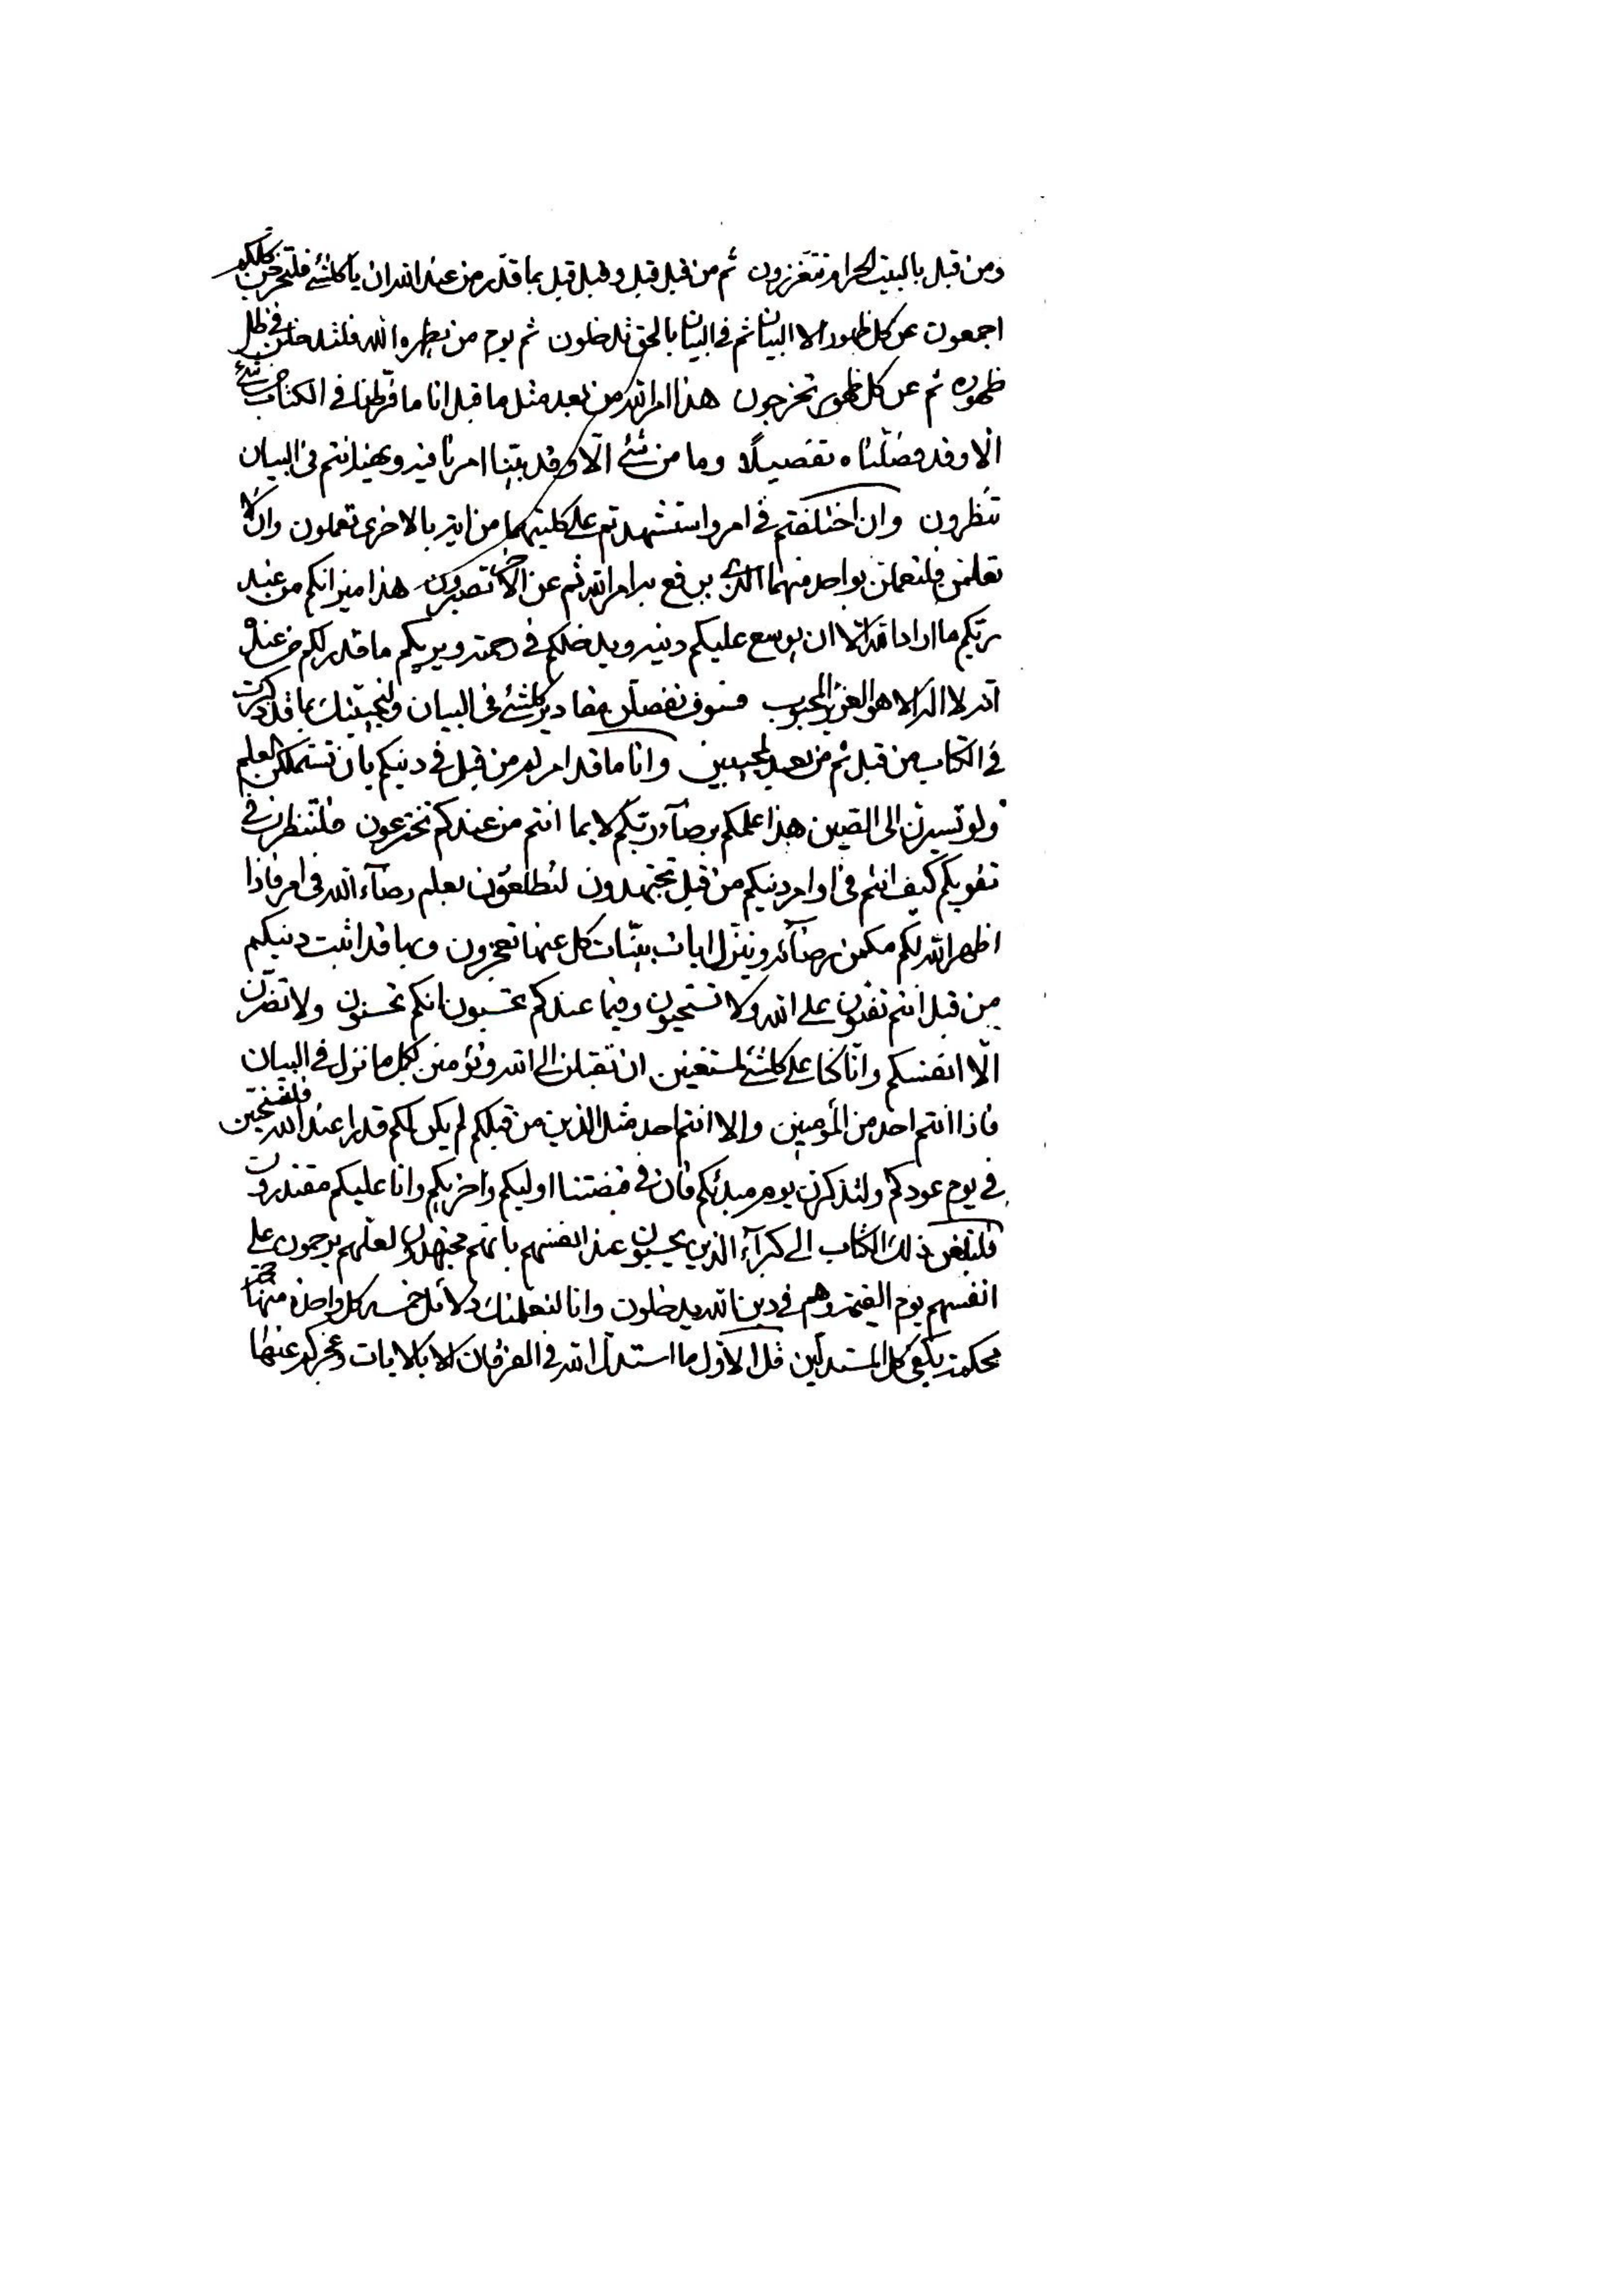 ومن قبل بالبيت الحرام تتعززون ثم من قبل قبل وقبل قبل بما قدر من عند الله ان يا كلشئ فلتخرجن كلكم
اجمعون عن كل ظهور الا البيان ثم في البيان بالحق تدخلون ثم يوم من يظهره الله فلتدخلن في ظل
ظهوره ثم عن كل ظهور تخرجون هذا امر الله من بعد مثل ما قبل انا ما فرطنا في الكتاب من شئ
الا وقد فصلناه تفصيلا وما من شئ الا وقد بينا امرنا فيه وبهذا انتم في البيان
تنظرون وان اختلفتم في امر واستشهدتم على كليتهما من اية بالاخرى تعملون وان لا
تعلمن فلتعملن بواحد منهما الذي يرفع به امر الله ثم عن الاخر تصبرون هذا ميزانكم من عند
ربكم ما اراد الله الا ان يوسع عليكم دينه ويدخلكم في رحمته ويريكم ما قدر لكم من عنده
انه لا اله الا هو العزيز المحبوب فسوف نفصلن مقادير كلشئ في البيان ولنجيبنك بما قد ذكرت
في الكتاب من قبل ثم من بعد لمجيبين وانا ما قد امرنا من قبل في دينكم بان تستملكن العلم
ولو تسيرن الى الصين هذا علمكم برضآء ربكم لا بما انتم من عندكم تخترعون فلتنظرن في
تقويكم كيف انتم في اوامر دينكم من قبل تجتهدون لتطلعون بعلم رضآء الله في امر فاذا
اظهر الله لكم مكمن رضآئه وينزل ايات بينات كل عنها تعجزون وبها قد اثبت دينكم
من قبل انتم تفتون على الله ولا تستحيون وفيما عندكم تحسبون انكم تحسنون ولا تضرن
الا انفسكم وانا كنا على كلشئ لمستغنين ان تقبلن الى الله وتؤمنن بكل ما نزل في البيان
فاذا انتم احد من المؤمنين والا انتم احد مثل الذين من قبلكم لم يكن لكم قدرا عند الله فلتستحين
في يوم عودكم ولتذكرن يوم مبدئكم فان في قبضتنا اوليكم واخريكم وانا عليكم مقتدرون
فلتبلغن ذلك الكتاب الى كبرآء الذين يحسبون عند انفسهم بانهم مجتهدون لعلهم يرحمون على
انفسهم يوم القيمة وهم في دين الله يدخلون وانا لنعلمنك دلائل خمسة كل واحدة منها حجة
محكمة يكفي كل المستدلين قل الاول ما استدل الله في الفرقان الا بالايات وعجز كم عنها